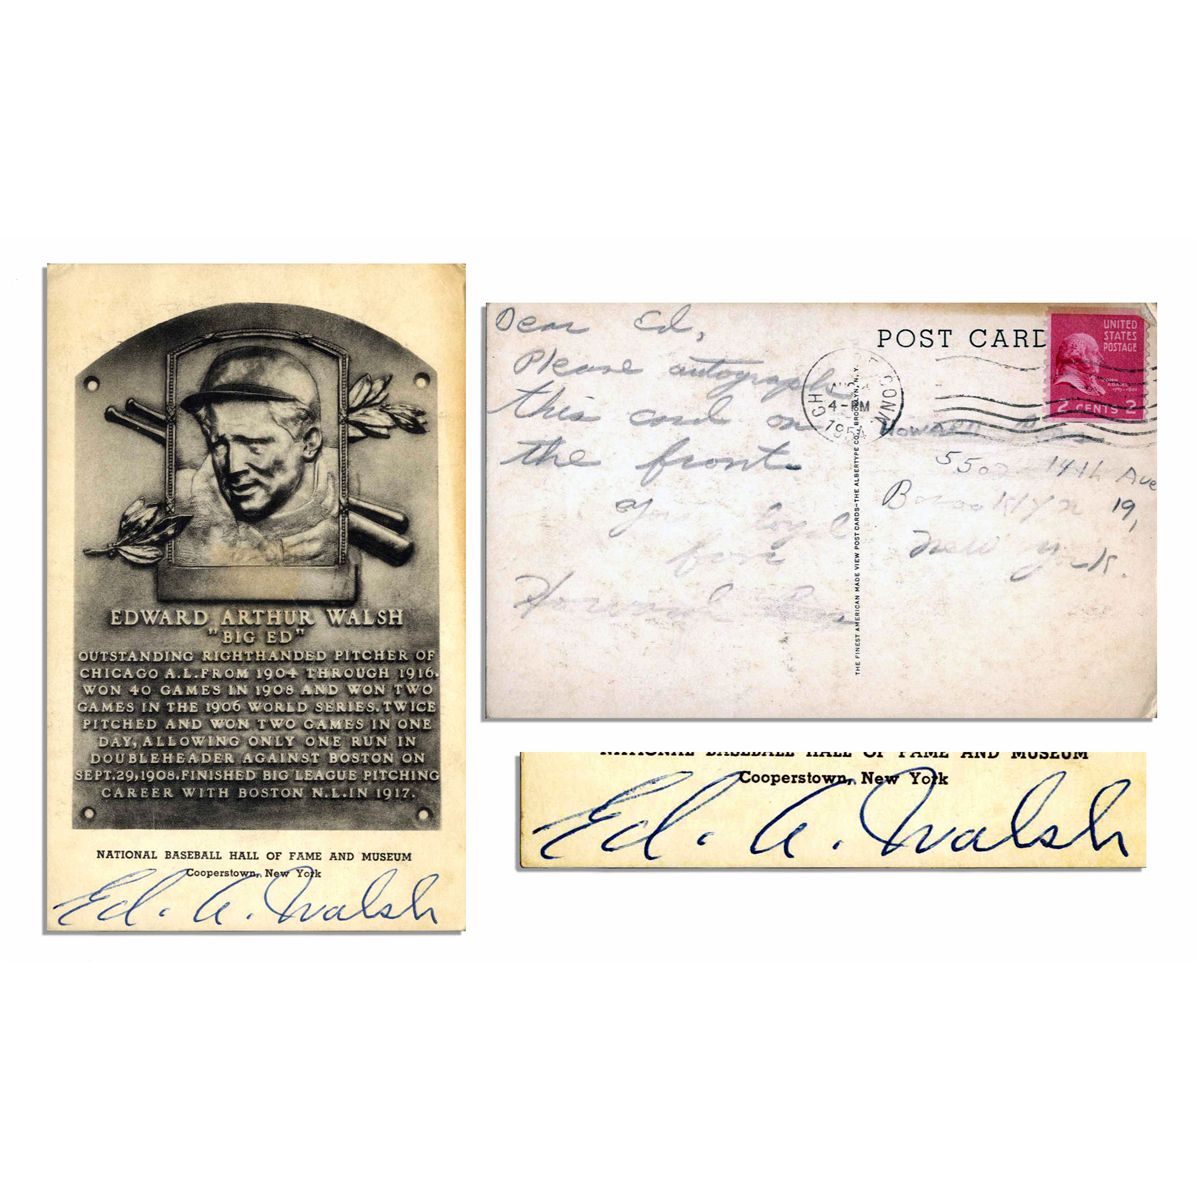 EDWARD ARTHUR WALSH
"BIG ED"
OUTSTANDING RIGHTHANDED PITCHER OF
CHICAGO A.L. FROM 1904 THROUGH 1916.
WON 40 GAMES IN 1908 AND WON TWO
GAMES IN THE 1906 WORLD SERIES. TWICE
PITCHED AND WON TWO GAMES IN ONE
DAY, ALLOWING ONLY ONE RUN IN
DOUBLEHEADER AGAINST BOSTON ON
SEPT. 29, 1908. FINISHED BIG LEAGUE PITCHING
CAREER WITH BOSTON N.L. IN 1917.
NATIONAL BASEBALL HALL OF FAME AND MUSEUM
Cooperstown, New York
Ed. A. Walsh
Dear Ed,
Please autograph
this card on
the front
Howard
POST CARD
UNITED
STATES
POSTAGE
JOHN
ADAMS
2 CENTS 2
CONN
4- PM
195
THE FINEST AMERICAN MADE VIEW POST CARDS-THE ALBERTYPE CO., BROOKLYN, N.Y.
Howard
5502 14th Ave
Brooklyn 19,
New York.
NATIONAL BASEBALL HALL OF FAME AND MUSEUM
Cooperstown, New York
Ed. A. Walsh